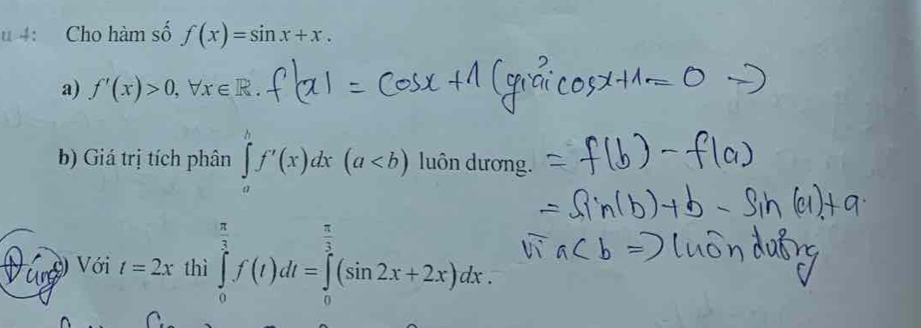 u 4: Cho hàm số f(x) = sin x + x.
a) f'(x) > 0, ∀x ∈ ℝ. f'(x) = cosx + 1 (giải cosx+1 = 0 →)
b) Giá trị tích phân ∫_a^b f'(x)dx (a < b) luôn dương. = f(b) - f(a)
= Sin(b) + b - Sin(a) + a.
vì a < b => luôn dương
Đúng c) Với t = 2x thì ∫_0^{π/3} f(t)dt = ∫_0^{π/3} (sin 2x + 2x)dx.